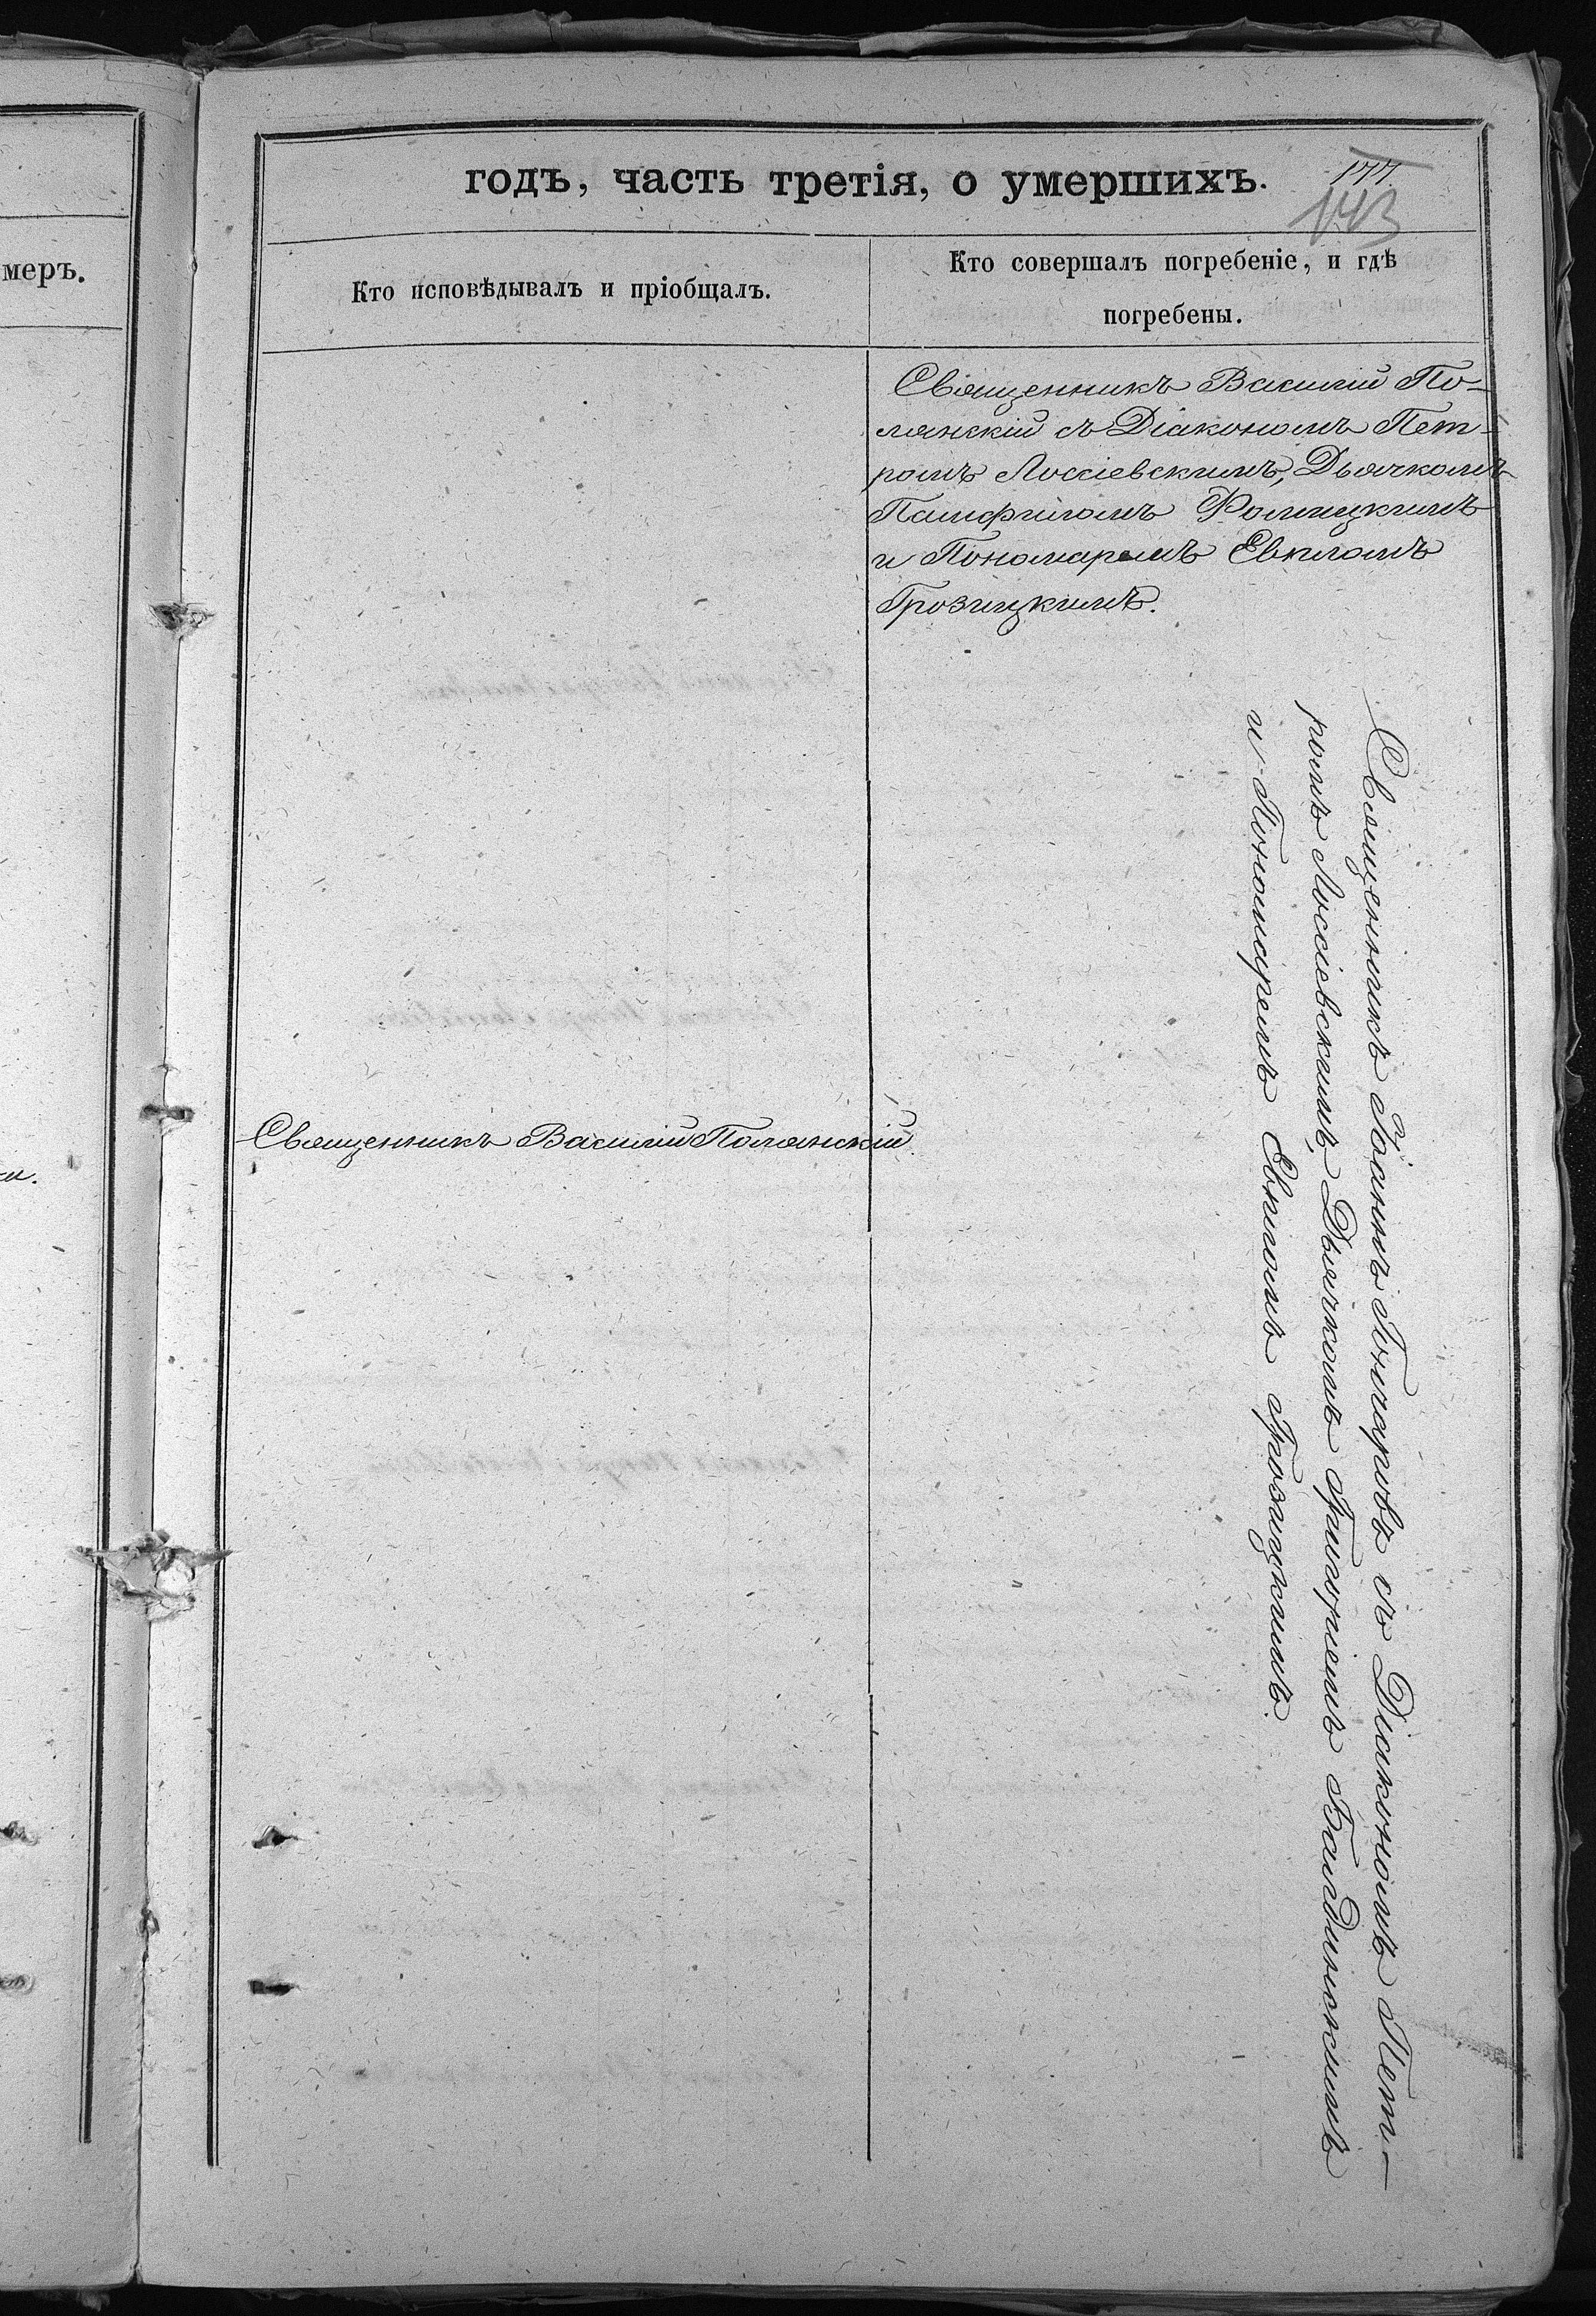 годъ, часть третія, о умершихъ.
177.
143
меръ.
Кто исповѣдывалъ и пріобщалъ.
Кто совершалъ погребеніе, и гдѣ
погребены.
Священникъ Василій По-
лянскій съ Діакономъ Пет-
ромъ Лоссіевскимъ, Дьячкомъ
Памфиломъ Фомицкимъ
и Пономаремъ Евпломъ
Грозицкимъ.
Священникъ Василій Полянскій.
Священникъ Іоаннъ съ Діакономъ Пет-
ромъ Лоссіевскимъ, Дьячкомъ Григоріемъ
и Пономаремъ Евпломъ Грозицкимъ.